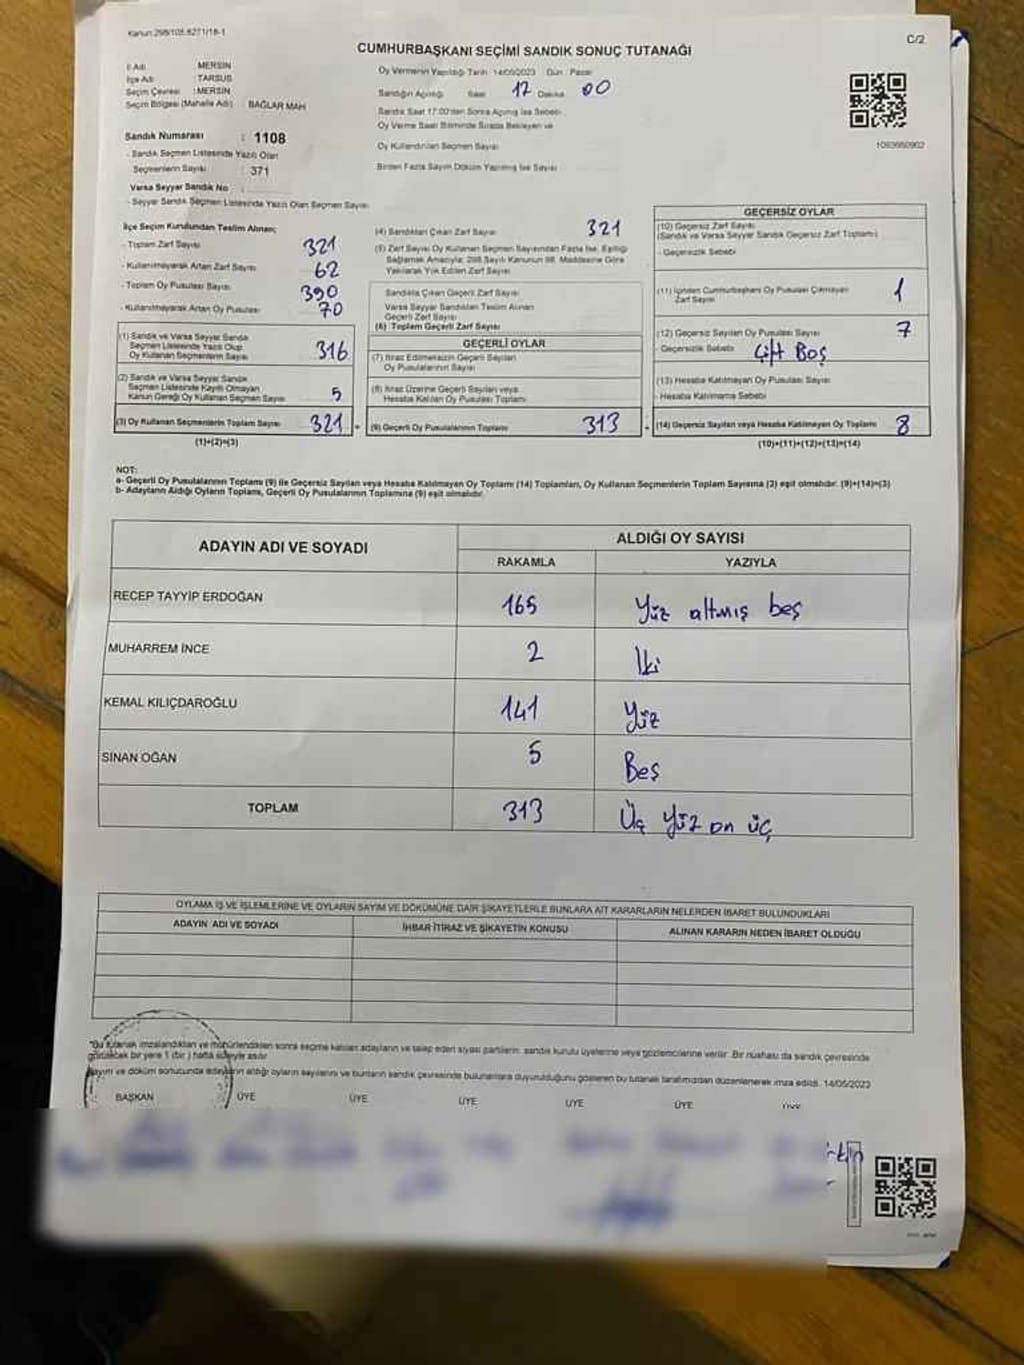 Kanun:298/105.6271/18-1
C/2
CUMHURBAŞKANI SEÇİMİ SANDIK SONUÇ TUTANAĞI
İl Adı : MERSİN
İlçe Adı : TARSUS
Seçim Çevresi : MERSİN
Seçim Bölgesi (Mahalle Adı) : BAĞLAR MAH
Sandık Numarası : 1108
- Sandık Seçmen Listesinde Yazılı Olan
Seçmenlerin Sayısı : 371
Varsa Seyyar Sandık No :
- Seyyar Sandık Seçmen Listesinde Yazılı Olan Seçmen Sayısı
Oy Vermenin Yapıldığı Tarih: 14/05/2023 Gün : Pazar
Sandığın Açıldığı Saat 17 Dakika 00
Sandık Saat 17:00'den Sonra Açılmış İse Sebebi
Oy Verme Saati Bitiminde Sırada Bekleyen ve
Oy Kullandırılan Seçmen Sayısı
Birden Fazla Sayım Döküm Yapılmış İse Sayısı
1093660902
İlçe Seçim Kurulundan Teslim Alınan;
- Toplam Zarf Sayısı 321
- Kullanılmayarak Artan Zarf Sayısı 62
- Toplam Oy Pusulası Sayısı 390
- Kullanılmayarak Artan Oy Pusulası 70
(1) Sandık ve Varsa Seyyar Sandık
Seçmen Listesinde Yazılı Olup
Oy Kullanan Seçmenlerin Sayısı 316
(2) Sandık ve Varsa Seyyar Sandık
Seçmen Listesinde Kayıtlı Olmayan
Kanun Gereği Oy Kullanan Seçmen Sayısı 5
(3) Oy Kullanan Seçmenlerin Toplam Sayısı 321
(1)+(2)=(3)
(4) Sandıktan Çıkan Zarf Sayısı 321
(5) Zarf Sayısı Oy Kullanan Seçmen Sayısından Fazla İse, Eşitliği
Sağlamak Amacıyla; 298 Sayılı Kanunun 98. Maddesine Göre
Yakılarak Yok Edilen Zarf Sayısı
Sandıkta Çıkan Geçerli Zarf Sayısı
Varsa Seyyar Sandıktan Teslim Alınan
Geçerli Zarf Sayısı
(6) Toplam Geçerli Zarf Sayısı
GEÇERLİ OYLAR
(7) İtiraz Edilmeksizin Geçerli Sayılan
Oy Pusulalarının Sayısı
(8) İtiraz Üzerine Geçerli Sayılan veya
Hesaba Katılan Oy Pusulası Toplamı
(9) Geçerli Oy Pusulalarının Toplamı 313
GEÇERSİZ OYLAR
(10) Geçersiz Zarf Sayısı
(Sandık ve Varsa Seyyar Sandık Geçersiz Zarf Toplamı)
- Geçersizlik Sebebi
(11) İçinden Cumhurbaşkanı Oy Pusulası Çıkmayan
Zarf Sayısı 1
(12) Geçersiz Sayılan Oy Pusulası Sayısı 7
- Geçersizlik Sebebi Çift Boş
(13) Hesaba Katılmayan Oy Pusulası Sayısı
- Hesaba Katılmama Sebebi
(14) Geçersiz Sayılan veya Hesaba Katılmayan Oy Toplamı 8
(10)+(11)+(12)+(13)=(14)
NOT:
a- Geçerli Oy Pusulalarının Toplamı (9) ile Geçersiz Sayılan veya Hesaba Katılmayan Oy Toplamı (14) Toplamları, Oy Kullanan Seçmenlerin Toplam Sayısına (3) eşit olmalıdır. (9)+(14)=(3)
b- Adayların Aldığı Oyların Toplamı, Geçerli Oy Pusulalarının Toplamına (9) eşit olmalıdır.
ADAYIN ADI VE SOYADI
ALDIĞI OY SAYISI
RAKAMLA YAZIYLA
RECEP TAYYİP ERDOĞAN 165 Yüz altmış beş
MUHARREM İNCE 2 İki
KEMAL KILIÇDAROĞLU 141 Yüz
SİNAN OĞAN 5 Beş
TOPLAM 313 Üç yüz on üç
OYLAMA İŞ VE İŞLEMLERİNE VE OYLARIN SAYIM VE DÖKÜMÜNE DAİR ŞİKAYETLERLE BUNLARA AİT KARARLARIN NELERDEN İBARET BULUNDUKLARI
ADAYIN ADI VE SOYADI İHBAR İTİRAZ VE ŞİKAYETİN KONUSU ALINAN KARARIN NEDEN İBARET OLDUĞU
"Bu tutanak imzalandıktan ve mühürlendikten sonra seçime katılan adayların ve talep eden siyasi partilerin sandık kurulu üyelerine veya gözlemcilerine verilir. Bir nüshası da sandık çevresinde
görülecek bir yere 1 (bir ) hafta süreyle asılır.
Sayım ve döküm sonucunda adayların aldığı oyların sayılarını ve bunların sandık çevresinde bulunanlara duyurulduğunu gösteren bu tutanak tarafımızdan düzenlenerek imza edildi. 14/05/2023
BAŞKAN ÜYE ÜYE ÜYE ÜYE ÜYE ÜYE